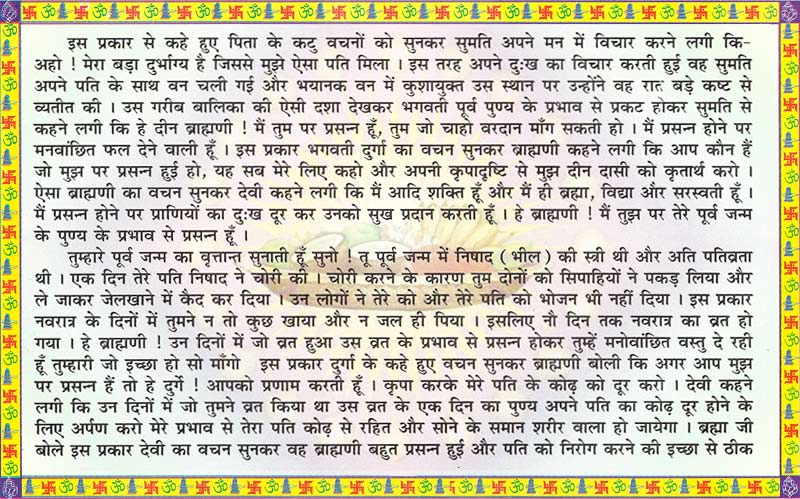 इस प्रकार से कहे हुए पिता के कटु वचनों को सुनकर सुमति अपने मन में विचार करने लगी कि-
अहो ! मेरा बड़ा दुर्भाग्य है जिससे मुझे ऐसा पति मिला । इस तरह अपने दुःख का विचार करती हुई वह सुमति
अपने पति के साथ वन चली गई और भयानक वन में कुशायुक्त उस स्थान पर उन्होंने वह रात बड़े कष्ट से
व्यतीत की । उस गरीब बालिका की ऐसी दशा देखकर भगवती पूर्व पुण्य के प्रभाव से प्रकट होकर सुमति से
कहने लगी कि हे दीन ब्राह्मणी ! मैं तुम पर प्रसन्न हूँ, तुम जो चाहो वरदान माँग सकती हो । मैं प्रसन्न होने पर
मनवांछित फल देने वाली हूँ । इस प्रकार भगवती दुर्गा का वचन सुनकर ब्राह्मणी कहने लगी कि आप कौन हैं
जो मुझ पर प्रसन्न हुई हो, यह सब मेरे लिए कहो और अपनी कृपादृष्टि से मुझ दीन दासी को कृतार्थ करो ।
ऐसा ब्राह्मणी का वचन सुनकर देवी कहने लगी कि मैं आदि शक्ति हूँ और मैं ही ब्रह्मा, विद्या और सरस्वती हूँ ।
मैं प्रसन्न होने पर प्राणियों का दुःख दूर कर उनको सुख प्रदान करती हूँ । हे ब्राह्मणी ! मैं तुझ पर तेरे पूर्व जन्म
के पुण्य के प्रभाव से प्रसन्न हूँ ।
तुम्हारे पूर्व जन्म का वृत्तान्त सुनाती हूँ सुनो ! तू पूर्व जन्म में निषाद ( भील ) की स्त्री थी और अति पतिव्रता
थी । एक दिन तेरे पति निषाद ने चोरी की । चोरी करने के कारण तुम दोनों को सिपाहियों ने पकड़ लिया और
ले जाकर जेलखाने में कैद कर दिया । उन लोगों ने तेरे को और तेरे पति को भोजन भी नहीं दिया । इस प्रकार
नवरात्र के दिनों में तुमने न तो कुछ खाया और न जल ही पिया । इसलिए नौ दिन तक नवरात्र का व्रत हो
गया । हे ब्राह्मणी ! उन दिनों में जो व्रत हुआ उस व्रत के प्रभाव से प्रसन्न होकर तुम्हें मनोवांछित वस्तु दे रही
हूँ तुम्हारी जो इच्छा हो सो माँगो इस प्रकार दुर्गा के कहे हुए वचन सुनकर ब्राह्मणी बोली कि अगर आप मुझ
पर प्रसन्न हैं तो हे दुर्गे ! आपको प्रणाम करती हूँ । कृपा करके मेरे पति के कोढ़ को दूर करो । देवी कहने
लगी कि उन दिनों में जो तुमने व्रत किया था उस व्रत के एक दिन का पुण्य अपने पति का कोढ़ दूर होने के
लिए अर्पण करो मेरे प्रभाव से तेरा पति कोढ़ से रहित और सोने के समान शरीर वाला हो जायेगा । ब्रह्मा जी
बोले इस प्रकार देवी का वचन सुनकर वह ब्राह्मणी बहुत प्रसन्न हुई और पति को निरोग करने की इच्छा से ठीक